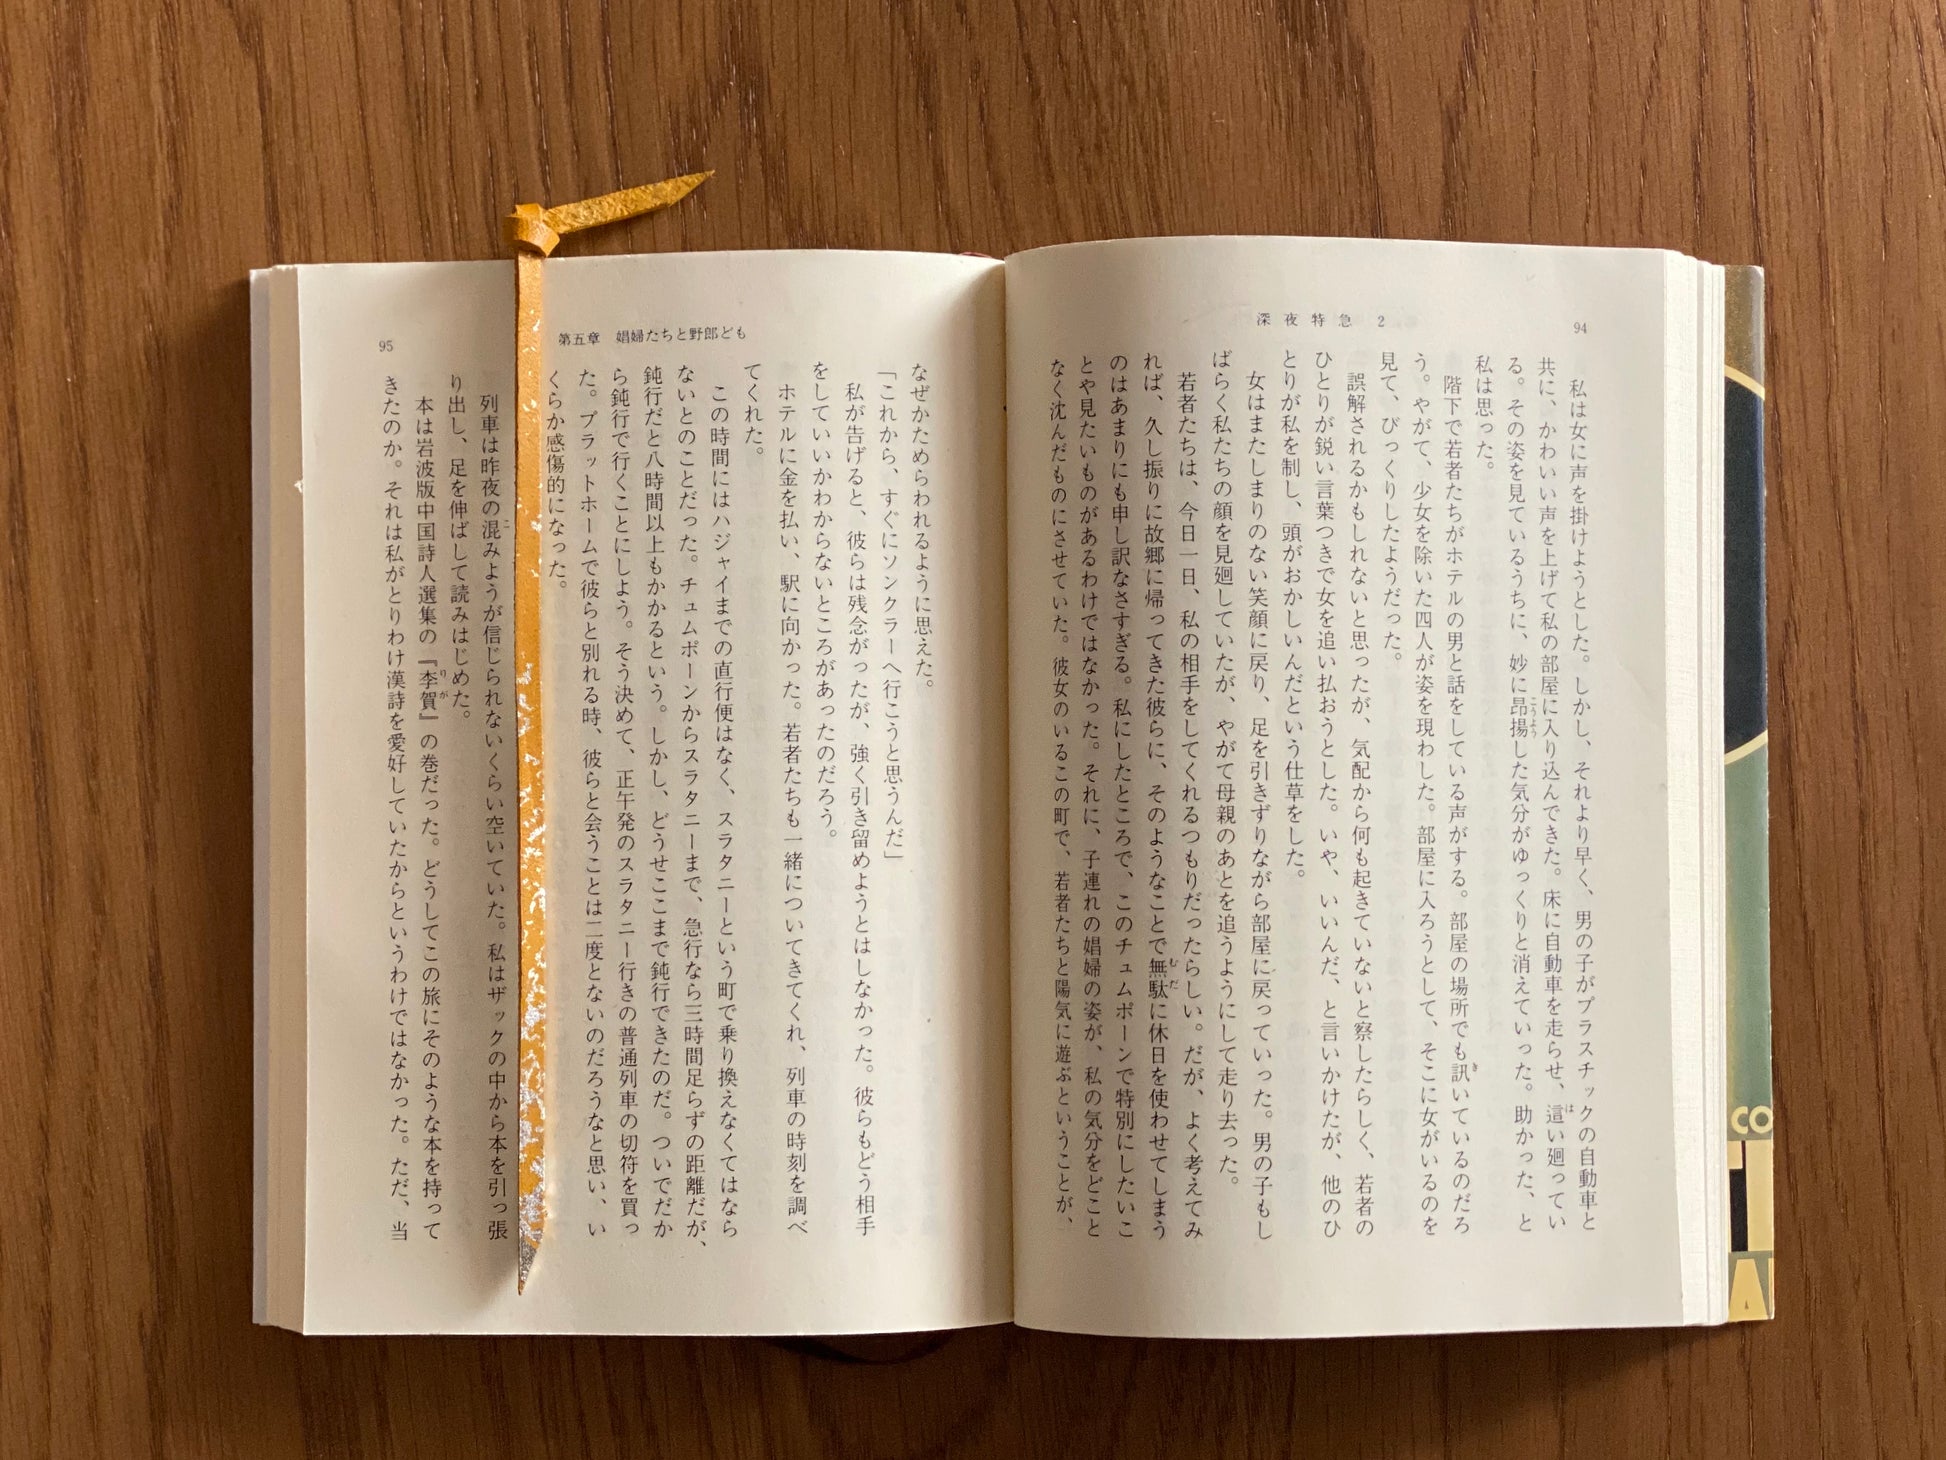 94
深夜特急 2
私は女に声を掛けようとした。しかし、それより早く、男の子がプラスチックの自動車と
共に、かわいい声を上げて私の部屋に入り込んできた。床に自動車を走らせ、這い廻ってい
る。その姿を見ているうちに、妙に昂揚した気分がゆっくりと消えていった。助かった、と
私は思った。
階下で若者たちがホテルの男と話をしている声がする。部屋の場所でも訊いているのだろ
う。やがて、少女を除いた四人が姿を現わした。部屋に入ろうとして、そこに女がいるのを
見て、びっくりしたようだった。
誤解されるかもしれないと思ったが、気配から何も起きていないと察したらしく、若者の
ひとりが鋭い言葉つきで女を追い払おうとした。いや、いいんだ、と言いかけたが、他のひ
とりが私を制し、頭がおかしいんだという仕草をした。
女はまたしまりのない笑顔に戻り、足を引きずりながら部屋に戻っていった。男の子もし
ばらく私たちの顔を見廻していたが、やがて母親のあとを追うようにして走り去った。
若者たちは、今日一日、私の相手をしてくれるつもりだったらしい。だが、よく考えてみ
れば、久し振りに故郷に帰ってきた彼らに、そのようなことで無駄に休日を使わせてしまう
のはあまりにも申し訳なさすぎる。私にしたところで、このチュムポーンで特別にしたいこ
とや見たいものがあるわけではなかった。それに、子連れの娼婦の姿が、私の気分をどこと
なく沈んだものにさせていた。彼女のいるこの町で、若者たちと陽気に遊ぶということが、
第五章 娼婦たちと野郎ども
95
なぜかためらわれるように思えた。
「これから、すぐにソンクラーへ行こうと思うんだ」
私が告げると、彼らは残念がったが、強く引き留めようとはしなかった。彼らもどう相手
をしていいかわからないところがあったのだろう。
ホテルに金を払い、駅に向かった。若者たちも一緒についてきてくれ、列車の時刻を調べ
てくれた。
この時間にはハジャイまでの直行便はなく、スラタニーという町で乗り換えなくてはなら
ないとのことだった。チュムポーンからスラタニーまで、急行なら三時間足らずの距離だが、
鈍行だと八時間以上もかかるという。しかし、どうせここまで鈍行できたのだ。ついでだか
ら鈍行で行くことにしよう。そう決めて、正午発のスラタニー行きの普通列車の切符を買っ
た。プラットホームで彼らと別れる時、彼らと会うことは二度とないのだろうなと思い、い
くらか感傷的になった。
列車は昨夜の混みようが信じられないくらい空いていた。私はザックの中から本を引っ張
り出し、足を伸ばして読みはじめた。
本は岩波版中国詩人選集の『李賀』の巻だった。どうしてこの旅にそのような本を持って
きたのか。それは私がとりわけ漢詩を愛好していたからというわけではなかった。ただ、当
CO